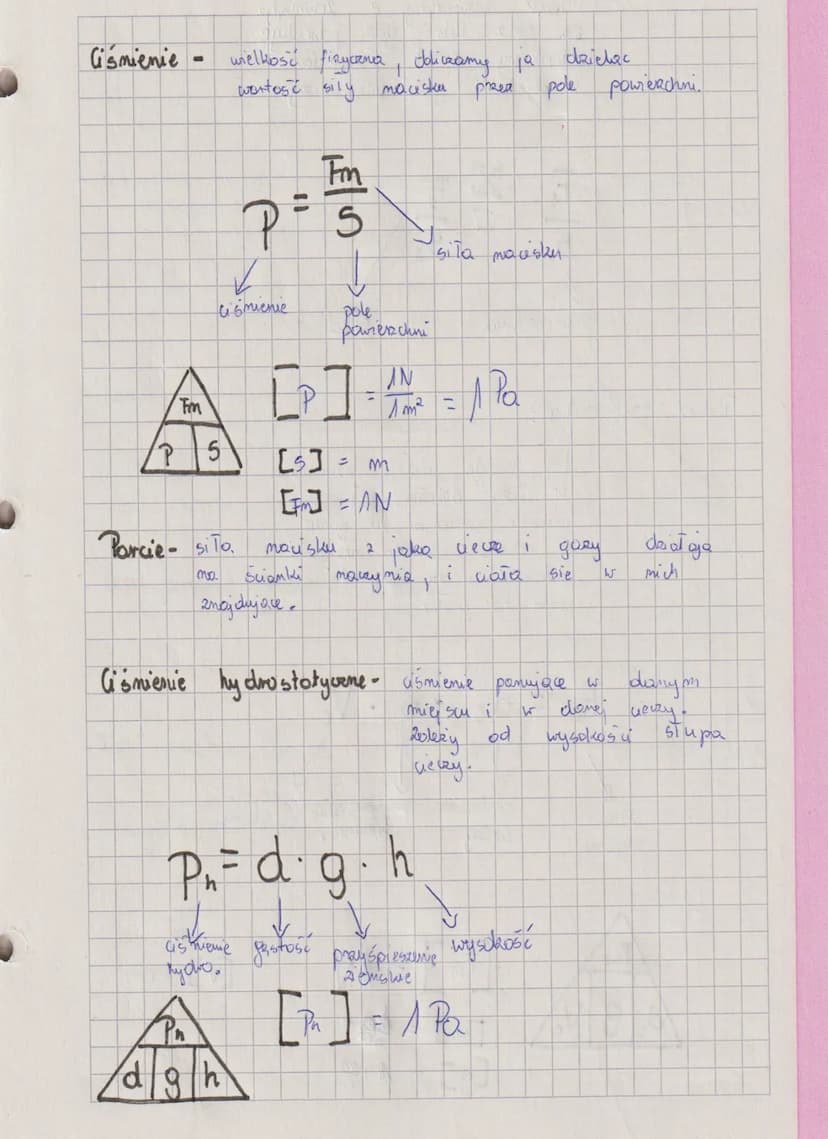 Ciśnienie - wielkość fizyczna, obliczamy ją dzieląc
wartość siły nacisku przez pole powierzchni.
p = Fn / S
siła nacisku
ciśnienie
pole
powierzchni
Fn
P S
[P] = 1N / 1m² = 1 Pa
[S] = m
[Fn] = 1N
Parcie - siła nacisku z jaką ciecze i gazy działają
na ścianki naczynia, i ciała się w nich
znajdujące.
Ciśnienie hydrostatyczne - ciśnienie panujące w danym
miejscu i w danej cieczy.
Zależy od wysokości słupa
cieczy.
Ph = d · g · h
ciśnienie
hydro.
gęstość
przyśpieszenie
ziemskie
wysokość
Ph
d g h
[Ph] = 1 Pa